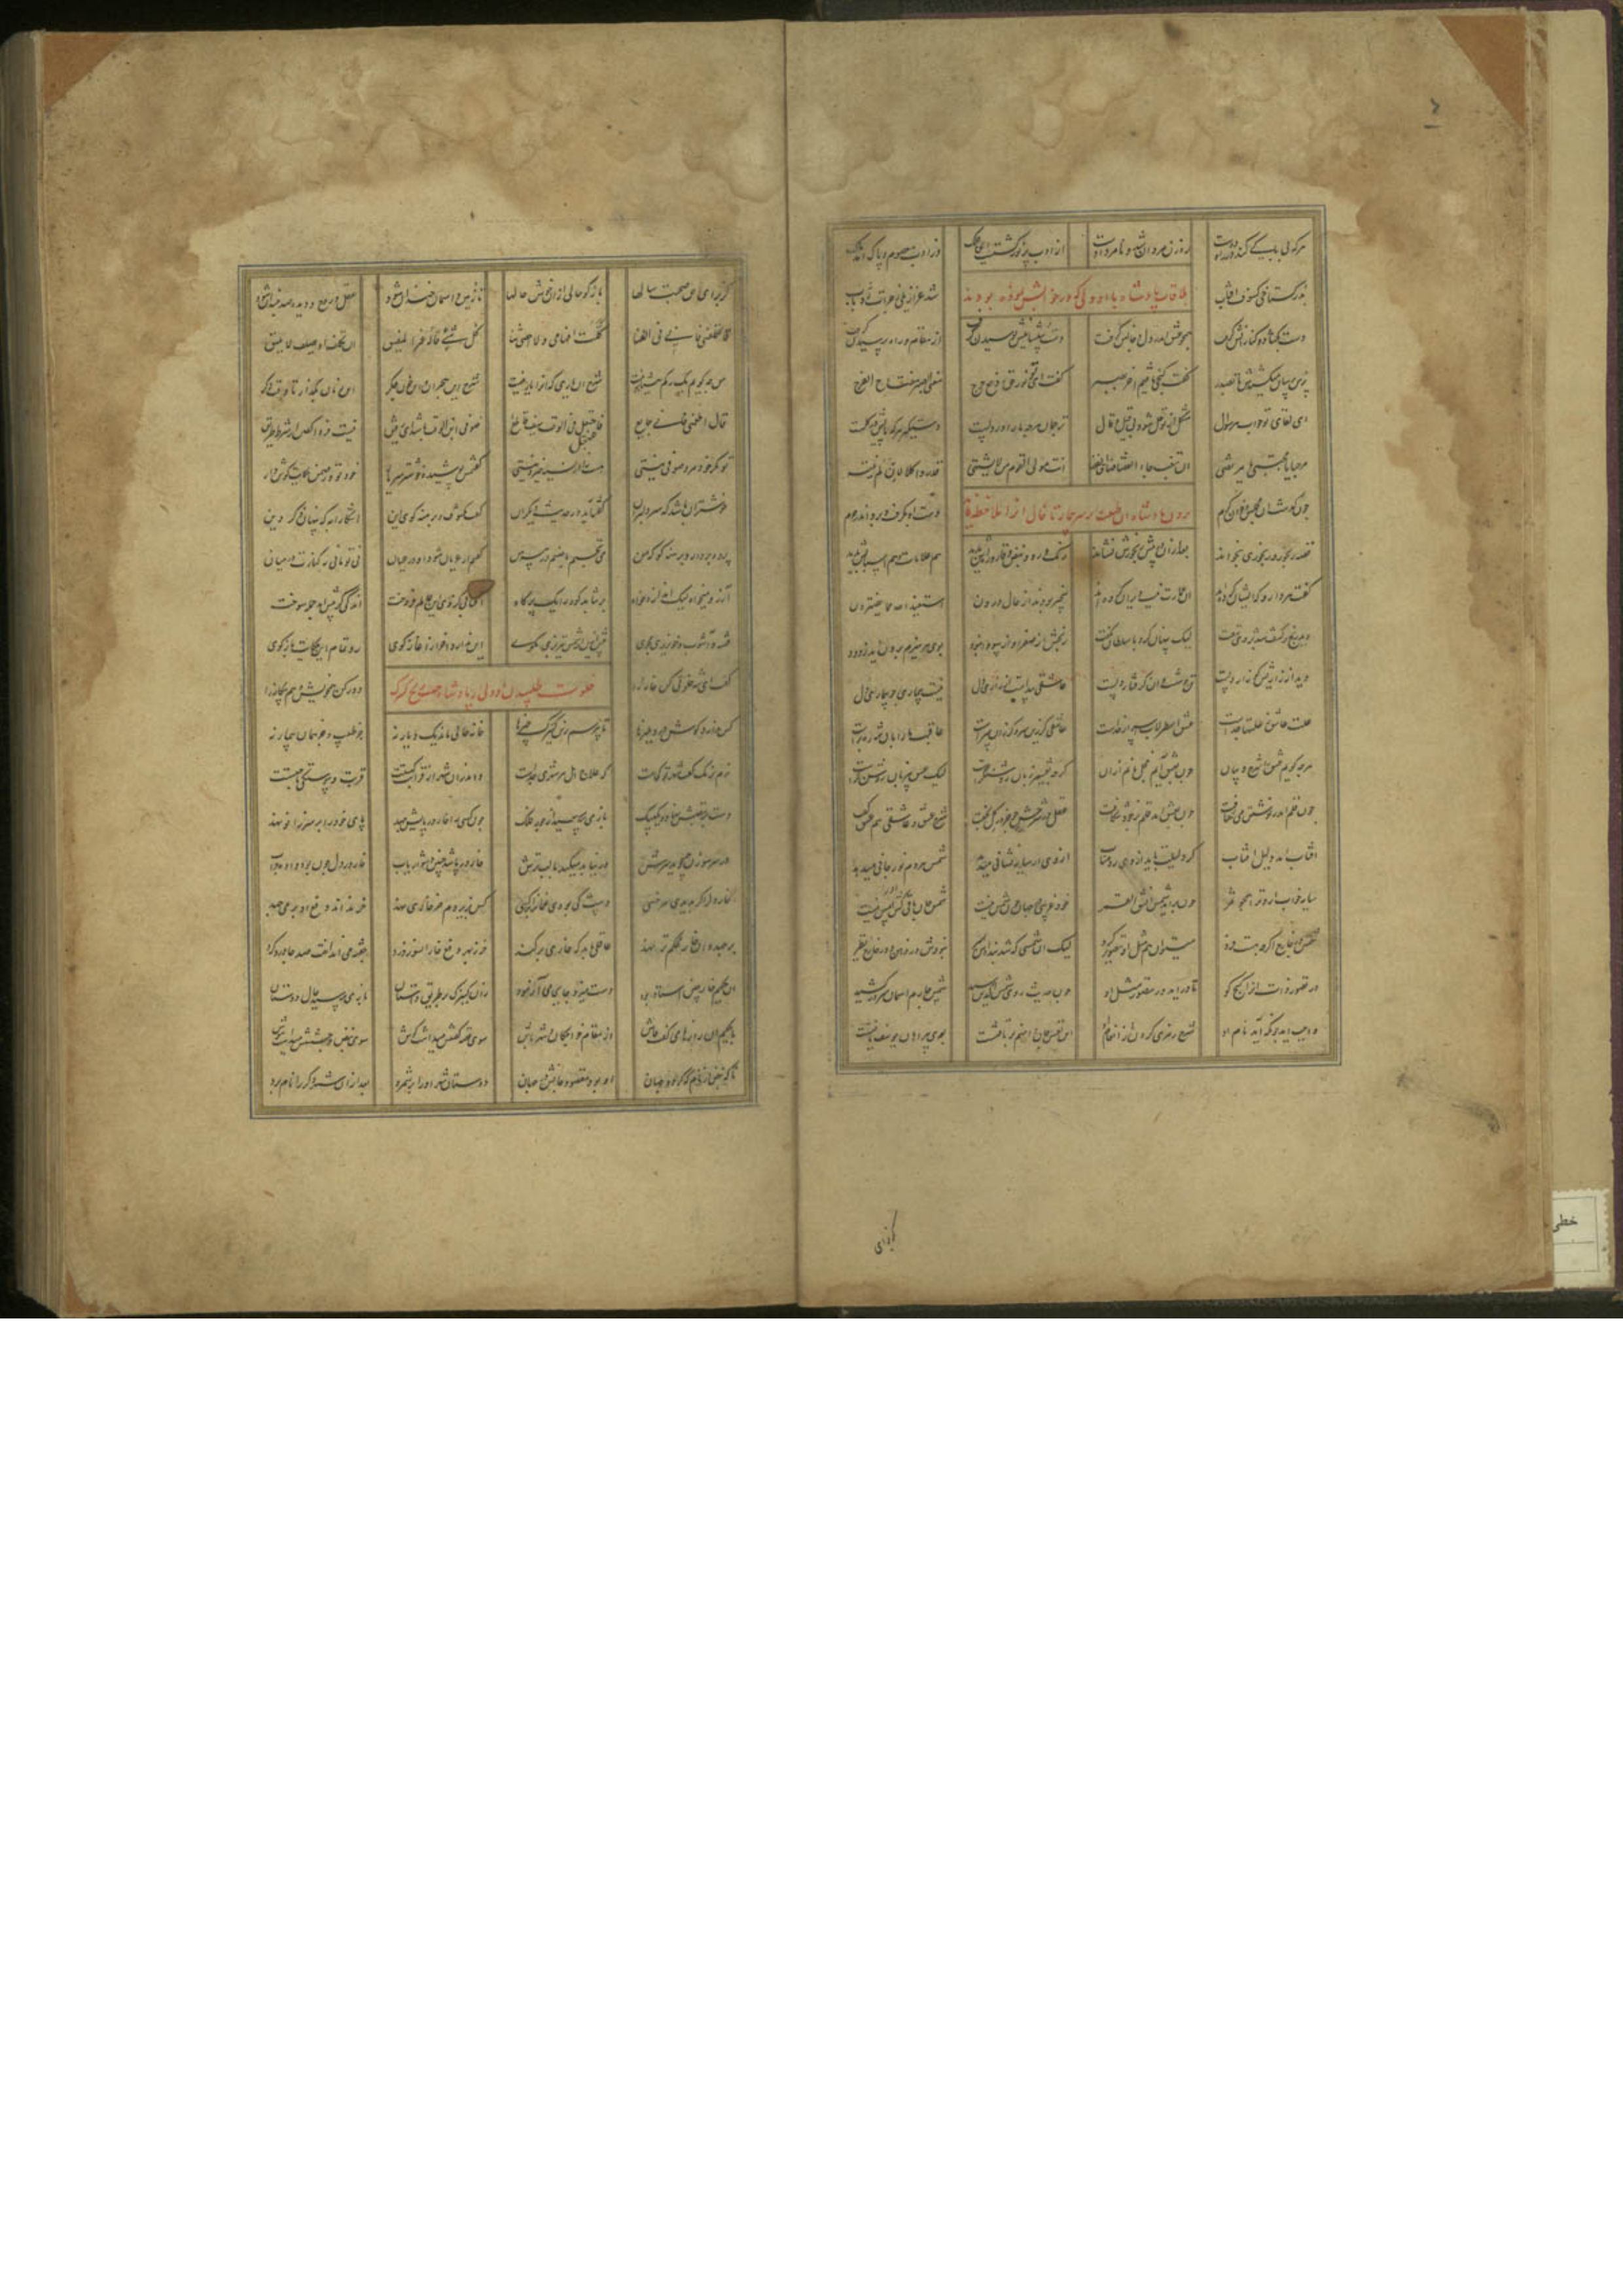 هر که بی باکی کند در راه دوست ره زن مردان شد و نامرد اوست از ادب پرنور گشتست این فلک وز ادب معصوم و پاک آمد ملک
بد ز گستاخی کسوف افتاب شد عزازیلی ز جرات رد باب
ملاقات پادشاه با ان ولی که در خوابش نموده بودند
دست بکشاد و کنارانش گرفت همچو عشق اندر دل و جانش گرفت دست و پیشانیش بوسیدن گرفت از مقام و راه پرسیدن گرفت
پرس پرسان میکشیدش تا بصدر گفت گنجی یافتم اخر بصبر گفت ای نور حق و دفع حرج معنی الصبر مفتاح الفرج
ای لقای تو جواب هر سوال مشکل از تو حل شود بی قیل و قال ترجمان هرچه ما را در دلست دستگیر هر که پایش در گلست
مرحبا یا مجتبی یا مرتضی ان تغب جاء القضا ضاق الفضا انت مولی القوم من لا یشتهی قد ردی کلا لئن لم ینته
چون گذشت ان مجلس و خوان کرم دست او بگرفت و برد اندر حرم
بردن پادشاه ان طبیب بر سر بیمار تا حال او را ملاحظه
قصه رنجور و رنجوری بخواند بعد ازان در پیش رنجورش نشاند رنگ رو و نبض و قاروره بدید هم علامات و هم اسبابش شنید
گفت هر دارو که ایشان کرده اند ان عمارت نیست ویران کرده اند بیخبر بودند از حال درون استعیذ الله مما یفترون
دید رنج و کشف شد بروی نهفت لیک پنهان کرد و با سلطان نگفت رنجش از صفرا و از سودا نبود بوی هر هیزم برون اید ز دود
دید از زاریش کو زار دلست تن خوشست و ان گرفتار دلست عاشقی پیداست از زاری دل نیست بیماری چو بیماری دل
علت عاشق ز علتها جداست عشق اسطرلاب اسرار خداست عاشقی گر زین سر و گر زان سرست عاقبت ما را بدان شه رهبرست
هرچه گویم عشق را شرح و بیان چون بعشق ایم خجل مانم ازان گرچه تفسیر زبان روشنگرست لیک عشق بی زبان روشنترست
چون قلم اندر نوشتن می شتافت چون بعشق امد قلم بر خود شکافت عقل در شرحش چو خر در گل بخفت شرح عشق و عاشقی هم عشق گفت
افتاب امد دلیل افتاب گر دلیلت باید از وی رو متاب از وی ار سایه نشانی میدهد شمس هر دم نور جانی میدهد
سایه خواب ارد ترا همچو سمر چون براید شمس انشق القمر خود غریبی در جهان چون شمس نیست شمس جان باقی کش امس نیست
شمس در خارج اگر چه هست فرد میتوان هم مثل او تصویر کرد لیک ان شمسی که شد بندش اثیر نبودش در ذهن و در خارج نظیر
در تصور ذات او را گنج کو تا دراید در تصور مثل او چون حدیث روی شمس الدین رسید شمس چارم اسمان سر در کشید
واجب اید چونکه اید نام او شرح رمزی کردن از انعام او این نفس جان دامنم بر تافتست بوی پیراهان یوسف یافتست
کز برای
کز برای حق صحبت سالها بازگو حالی از ان خوش حالها تا زمین و اسمان خندان شود عقل و روح و دیده صد چندان شود
لا تکلفنی فانی فی الفنا کلت افهامی و لا احصی ثنا کل شیء قاله غیر المفیق ان تکلف او تصلف لا یلیق
من چه گویم یک رگم هشیار نیست شرح ان یاری که او را یار نیست شرح این هجران و این خون جگر این زمان بگذار تا وقت دگر
قال اطعمنی فانی جایع فاعتجل فالوقت سیف قاطع صوفی ابن الوقت باشد ای رفیق نیست فردا گفتن از شرط طریق
تو مگر خود مرد صوفی نیستی هست را از نسیه خیزد نیستی گفتمش پوشیده خوشتر سر یار خود تو در ضمن حکایت گوش دار
خوشتر ان باشد که سر دلبران گفته اید در حدیث دیگران گفت مکشوف و برهنه گوی این اشکارا به که پنهان ذکر دین
پرده بردار و برهنه گو که من می نخسبم با صنم در پیرهن گفتم ار عریان شود او در عیان نی تو مانی نه کنارت نه میان
ارزو میخواه لیک اندازه خواه بر نتابد کوه را یک برگ کاه افتابی کز وی این عالم فروخت اندکی گر پیش اید جمله سوخت
فتنه و اشوب و خونریزی مجوی بیش ازین از شمس تبریزی مگوی این ندارد اخر از اغاز گوی رو تمام این حکایت بازگوی
خلوت طلبیدن ان ولی از پادشاه جهت کنیزک
گفت ای شه خلوتی کن خانه را دور کن هم خویش و هم بیگانه را
کس ندارد گوش در دهلیزها تا بپرسم زین کنیزک چیزها خانه خالی ماند و یک دیار نه جز طبیب و جز همان بیمار نه
نرم نرمک گفت شهر تو کجاست که علاج اهل هر شهری جداست واندران شهر از قرابت کیستت خویشی و پیوستگی با چیستت
دست بر نبضش نهاد و یک بیک باز می پرسید از جور فلک چون کسی را خار در پایش خلد پای خود را بر سر زانو نهد
از سر سوزن همی جوید سرش ور نیابد میکند با لب ترش خار در پا شد چنین دشوار یاب خار در دل چون بود واده جواب
خار دل را گر بدیدی هر خسی دست کی بودی غمان را بر کسی کس بزیر دم خر خاری نهد خر نداند دفع او بر می جهد
بر جهد وان خار محکمتر زند عاقلی باید که خاری بر کند خر ز بهر دفع خار از سوز و درد جفته می انداخت صد جا زخم کرد
ان حکیم خارچین استاد بود دست میزد جابجا می ازمود زان کنیزک بر طریق داستان باز می پرسید حال دوستان
با حکیم او رازها می گفت فاش از مقام و خواجگان و شهر تاش سوی قصه گفتنش میداشت گوش سوی نبض و جستنش میداشت هوش
تا که نبض از نام که گردد جهان او بود مقصود جانش در جهان دوستان شهر او را بر شمرد بعد ازان شهری دگر را نام برد
خطی